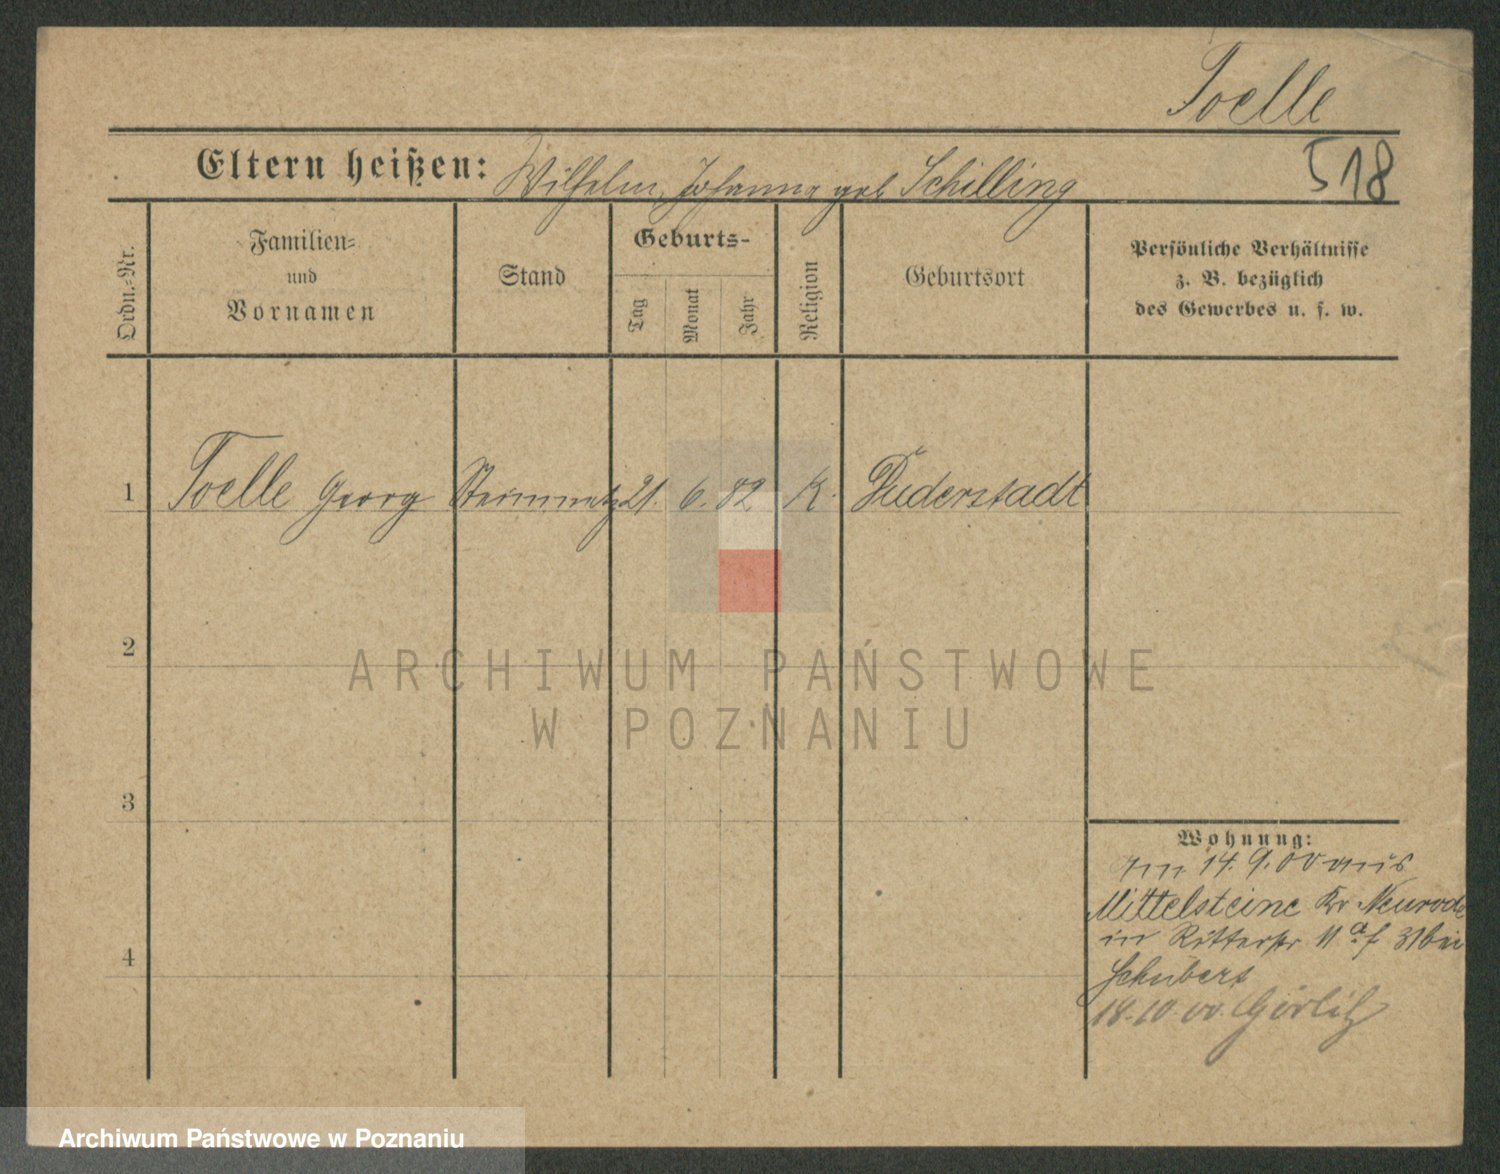 Toelle
518
Eltern heißen: Wilhelm, Johanna geb Schilling
Ordn.-Nr.
Familien-
und
Vornamen
Stand
Geburts-
Tag
Monat
Jahr
Religion
Geburtsort
Persönliche Verhältnisse
z. B. bezüglich
des Gewerbes u. s. w.
1 Toelle Georg Steinmetz 21. 6. 82 K. Duderstadt
2
3
4
Wohnung:
am 14. 9. 00 aus
Mittelsteine Kr Neurode
in Ritterstr 11 bei
Schubert
18.10.00. Görlitz
ARCHIWUM PAŃSTWOWE
W POZNANIU
Archiwum Państwowe w Poznaniu